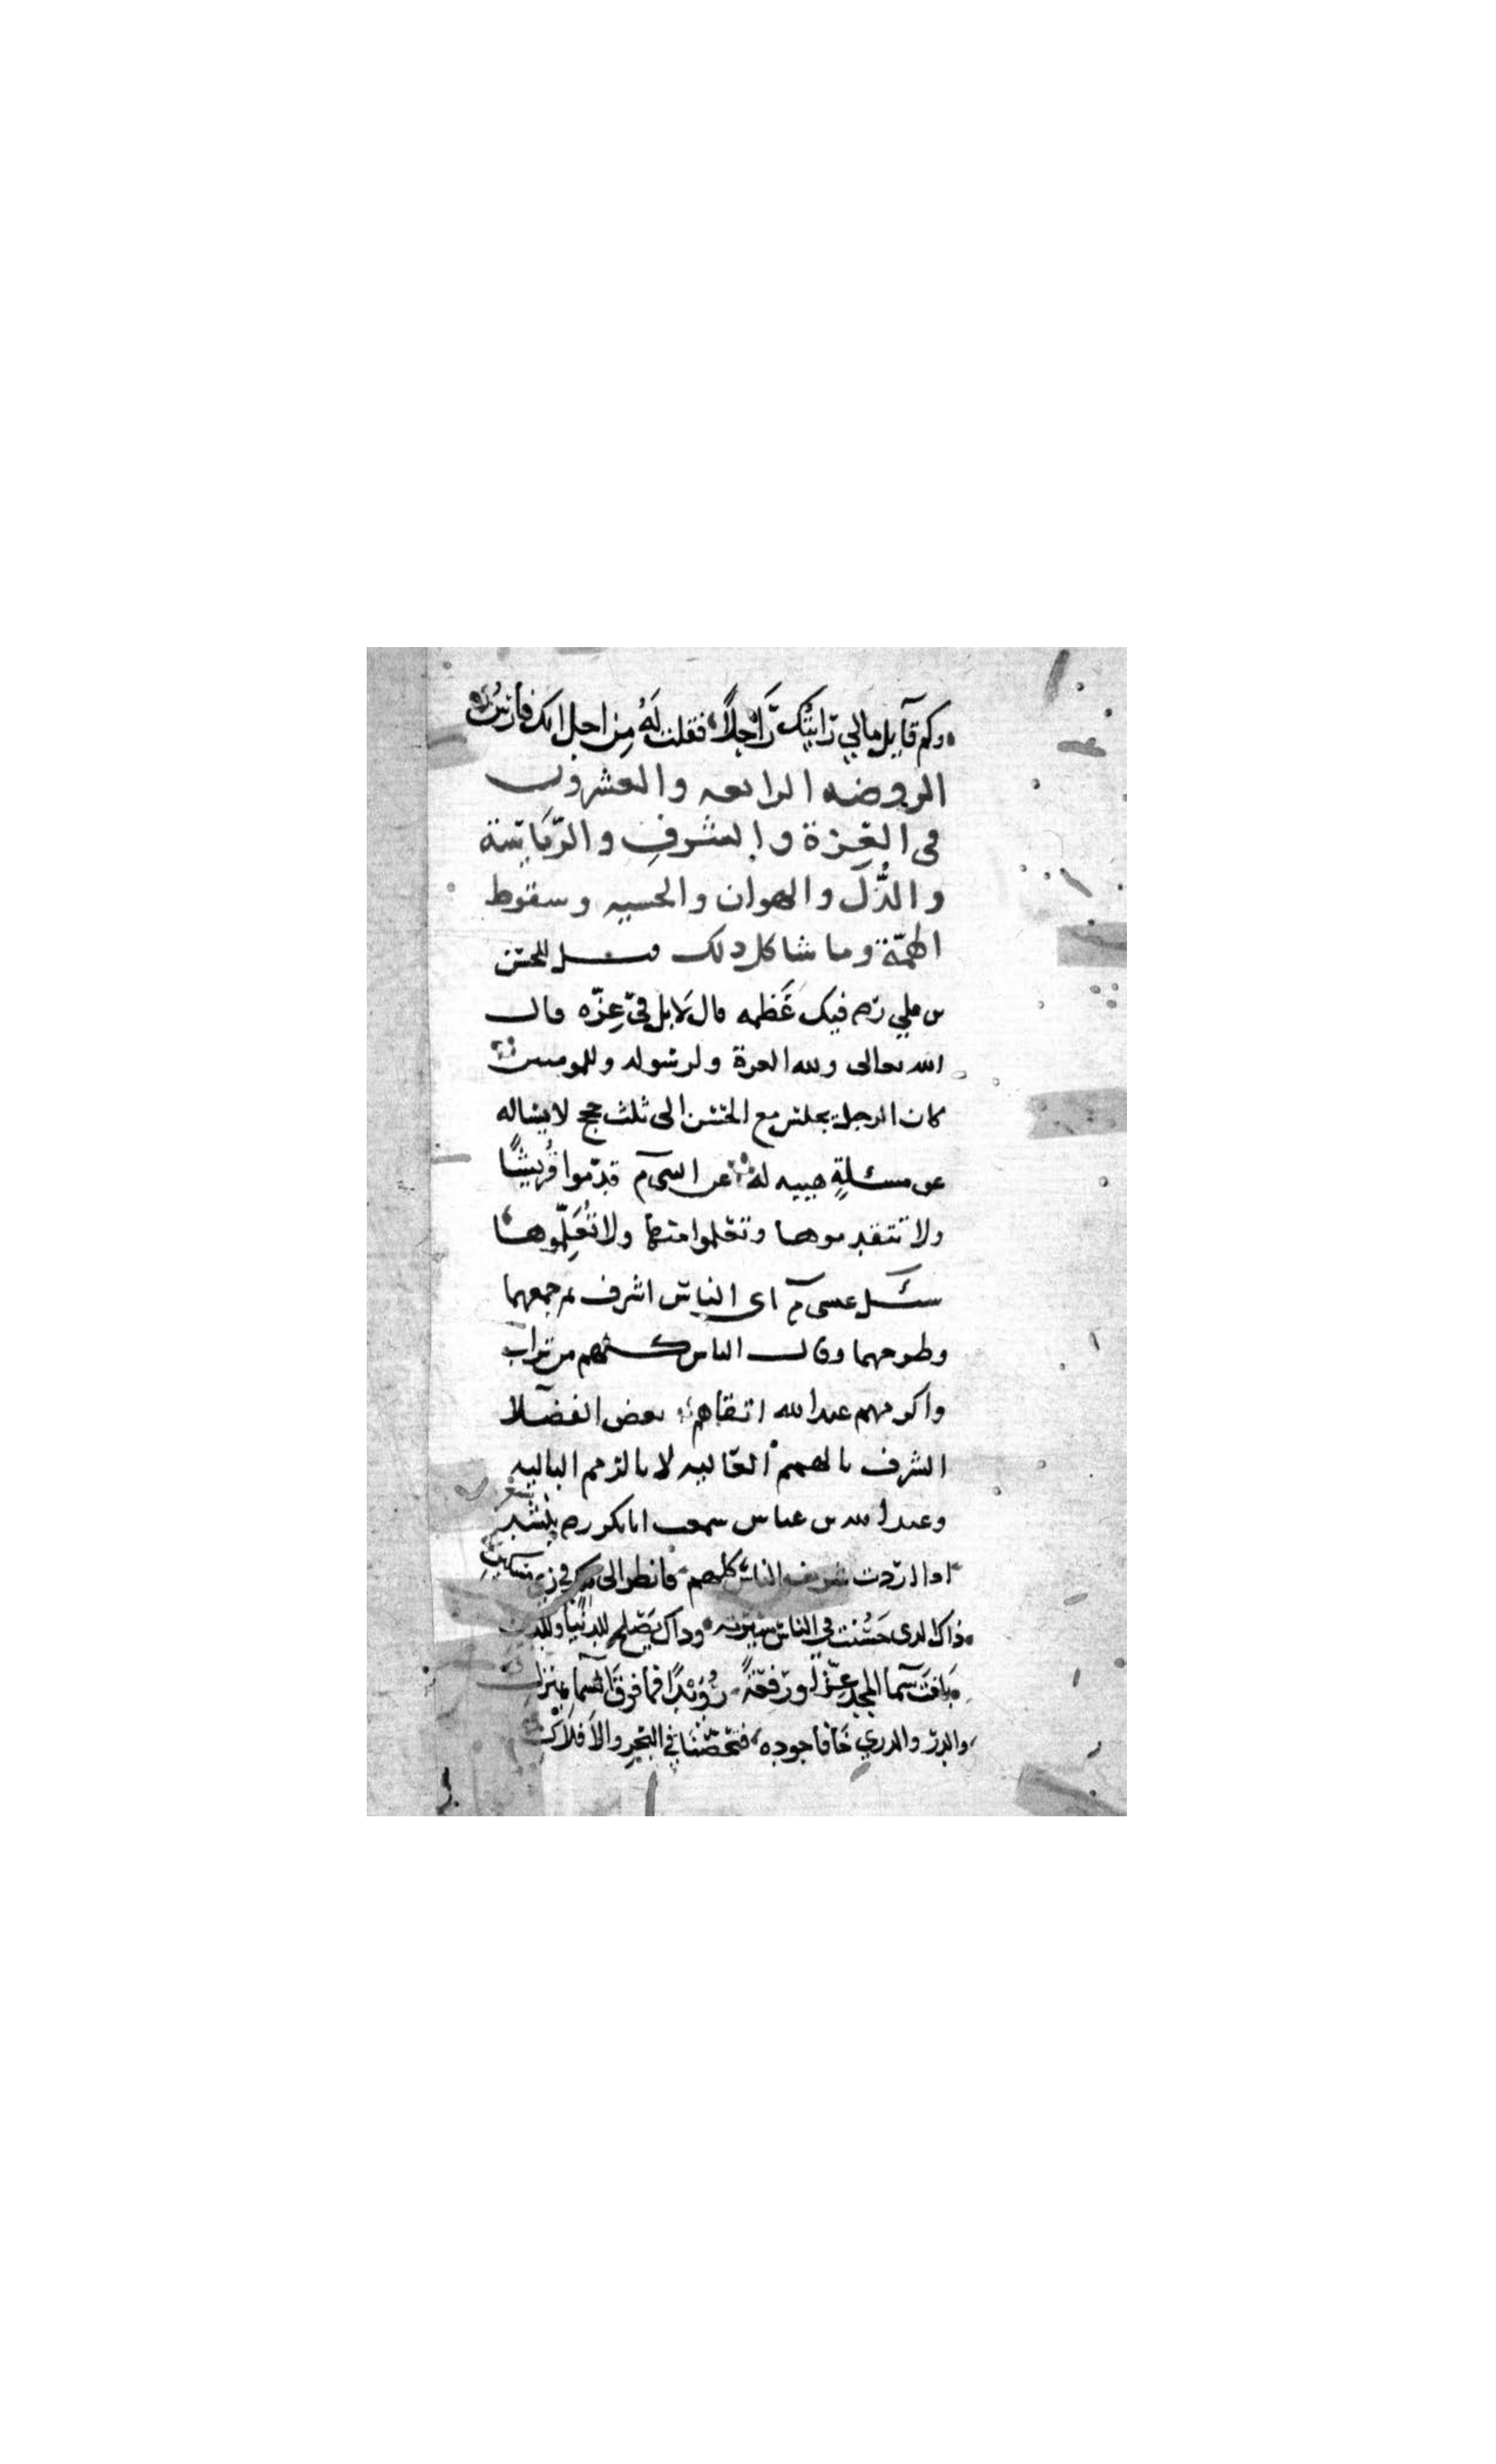 وكم قآيل مالي رَايتك رَاجلاً فقلت لهُ من اجل انك فارسُ
الروضه الرابعه والعشرون
في العِزة والشرفِ والرّيَاسة
والذُّل والهوان والخسه وسقوط
الهمّة وما شاكل ذلك قيل للحسن
بن علي رضه فيك عَظمه قال لَا بل فيّ عِزّه قال
الله تعالى ولله العزة ولرسوله وللمومنين
كان الرجل يجلس مع الحسن الى ثلث حجج لا يساله
عن مسئلةٍ هيبه له عن النبي م قدّموا قُريشًا
ولا تتقدموها وتعلموا منها ولا تُعَلِّموها
سئل عيسى م اى الناس اشرف ثم جمعهما
وطرحهما وقال الناس كلهم من تراب
واكرمهم عند الله اتقاهم بعض الفضلآ
الشرف بالهمم العَاليه لا بالرمم الباليه
وعبد الله بن عباس سمعت ابا بكر رضه ينشد
اذا اردت شريف الناس كلهم فانظر الى ملك في زي مسكين
ذاك الذى حَسُنت في الناس سيرته وذاك يَصْلح للدنيا وللدين
بلغتَ سَما المجد عِزًا ورفعةً رُوَيْدًا فما فوقَ السَما منزل
والدرّ والدري خَافا جوده فتحصّنا في البَحْر والأفلاك